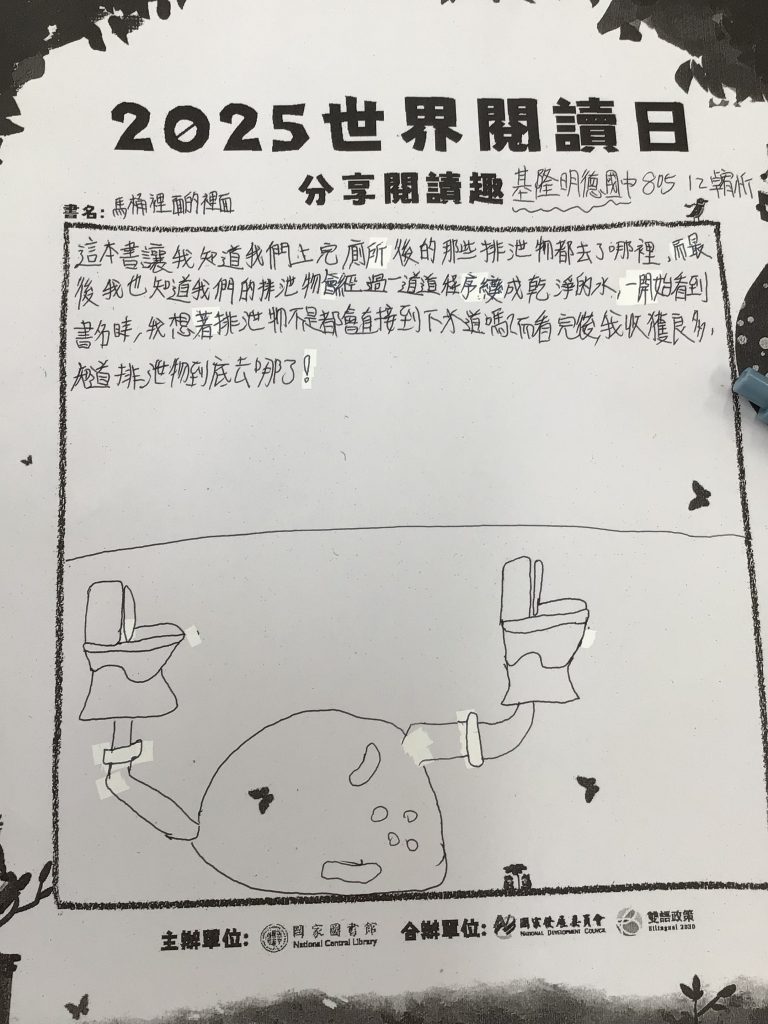 2025世界閱讀日
分享閱讀趣 基隆明德國中805 12
書名: 馬桶裡面的裡面
這本書讓我知道我們上完廁所後的那些排泄物都去了哪裡,而最
後我也知道我們的排泄物會經過一道道程序變成乾淨的水,一開始看到
書名時,我想著排泄物不是都會直接到下水道嗎?而看完後,我收獲良多,
知道排泄物到底去哪了!
主辦單位: 國家圖書館 National Central Library 合辦單位: 國家發展委員會 NATIONAL DEVELOPMENT COUNCIL 雙語政策 Bilingual 2030